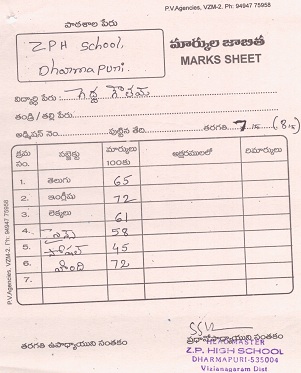 P.V.Agencies, VZM-2. Ph: 94947 75958
పాఠశాల పేరు
Z.P.H School,
Dharmapuri.
మార్కుల జాబితా
MARKS SHEET
విద్యార్థి పేరు
తండ్రి / తల్లి పేరు
అడ్మిషన్ నెం. పుట్టిన తేది. తరగతి 7
క్రమ సం. సబ్జెక్టు మార్కులు 100కు అక్షరములలో రిమార్కులు
1. తెలుగు 65
2. ఇంగ్లీషు 72
3. లెక్కలు 61
4. సైన్స్ 58
5. సోషల్ 45
6. హింది 72
7.
P.V.Agencies, VZM-2. Ph: 94947 75958
తరగతి ఉపాధ్యాయుని సంతకం ప్రధానోపాధ్యాయుని సంతకం
HEADMASTER
Z.P. HIGH SCHOOL
DHARMAPURI-535004
Vizianagaram Dist